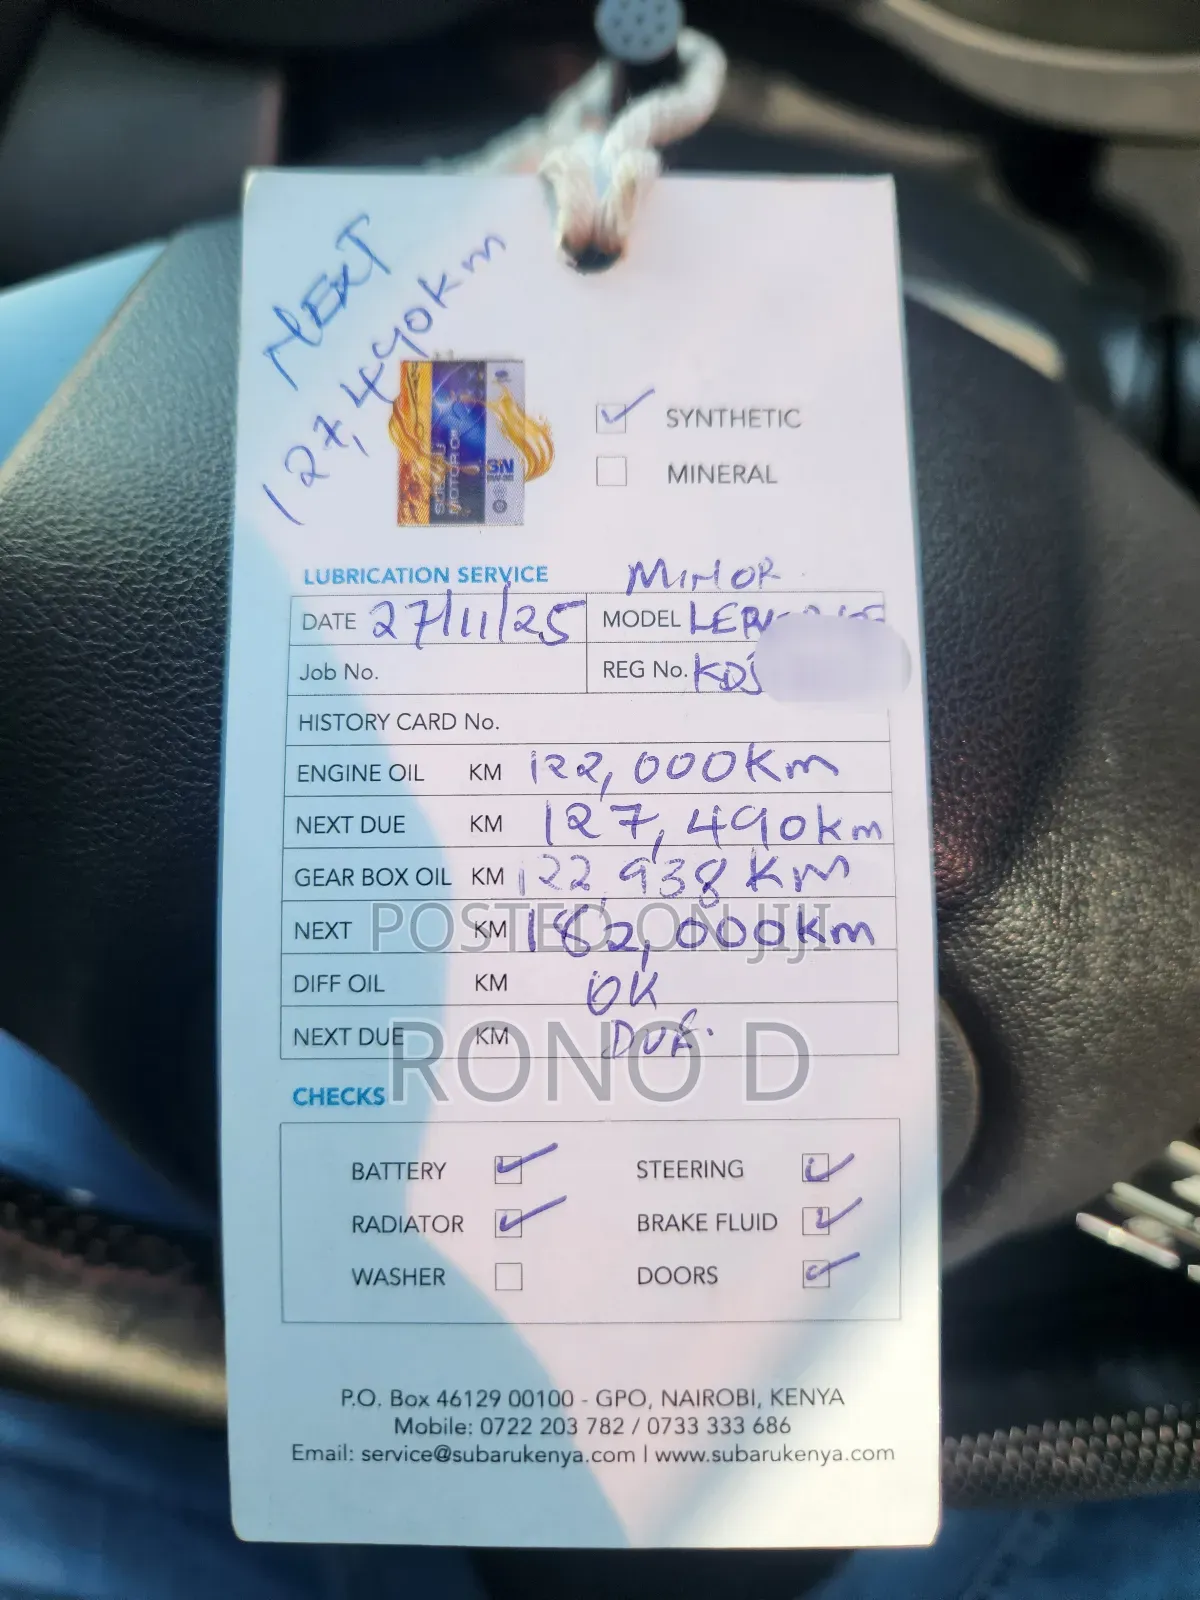 NEXT
127,490km
SUBARU
MOTOR OIL
SN
SYNTHETIC
MINERAL
LUBRICATION SERVICE MINOR
DATE 27/11/25 MODEL
Job No. REG No. KDJ
HISTORY CARD No.
ENGINE OIL KM 122,000Km
NEXT DUE KM 127,490km
GEAR BOX OIL KM 122,938KM
NEXT KM 182,000Km
POSTED ON JIJI
DIFF OIL KM OK
NEXT DUE KM DUE.
RONO D
CHECKS
BATTERY STEERING
RADIATOR BRAKE FLUID
WASHER DOORS
P.O. Box 46129 00100 - GPO, NAIROBI, KENYA
Mobile: 0722 203 782 / 0733 333 686
Email: service@subarukenya.com | www.subarukenya.com